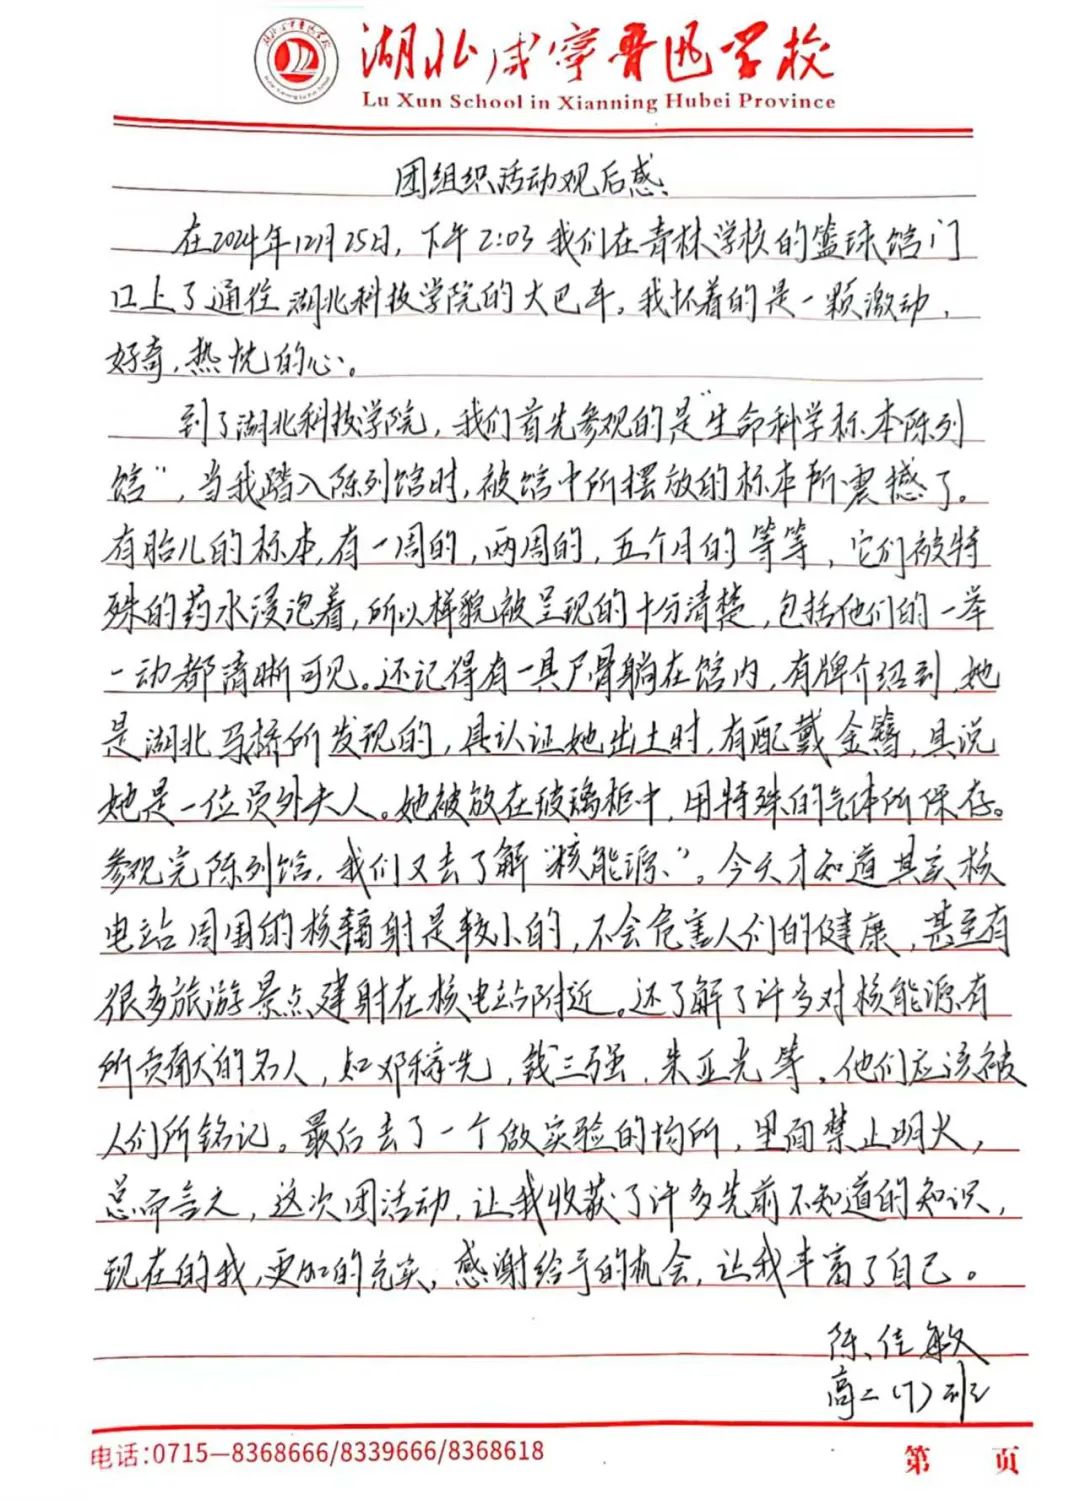 湖北咸宁鲁迅学校
Lu Xun School in Xianning Hubei Province
团组织活动观后感
在2024年12月25日，下午2:03我们在青林学校的篮球馆门
口上了通往湖北科技学院的大巴车。我怀着的是一颗激动，
好奇，热忱的心。
到了湖北科技学院，我们首先参观的是"生命科学标本陈列
馆"，当我踏入陈列馆时，被馆中所摆放的标本所震撼了。
有胎儿的标本，有一周的，两周的，五个月的等等，它们被特
殊的药水浸泡着，所以样貌被呈现的十分清楚，包括他们的一举
一动都清晰可见。还记得有一具尸骨躺在馆内，有牌介绍到，她
是湖北马桥所发现的，具认证她出土时，有配戴金簪，具说
她是一位员外夫人。她被放在玻璃柜中，用特殊的气体所保存。
参观完陈列馆，我们又去了解"核能源"。今天才知道其实核
电站周围的核辐射是较小的，不会危害人们的健康，甚至有
很多旅游景点建射在核电站附近。还了解了许多对核能源有
所贡献的名人，如邓稼先，钱三强，朱亚光等，他们应该被
人们所铭记。最后去了一个做实验的场所，里面禁止明火，
总而言之，这次团活动，让我收获了许多先前不知道的知识，
现在的我，更加的充实，感谢给予的机会，让我丰富了自己。
陈佳敏
高二(7)班
电话:0715—8368666/8339666/8368618
第 页